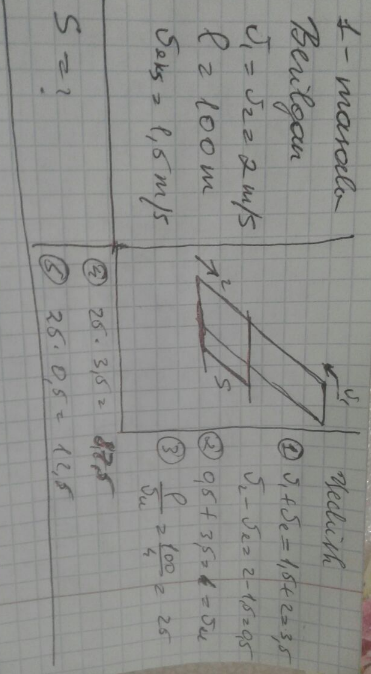 1-masala
Berilgan
v₁ = v₂ = 2 m/s
l = 100 m
v = 1,5 m/s
S = ?
v₁
2
S
Yechish
① v₁ + v = 1,5 + 2 = 3,5
v₂ - v = 2 - 1,5 = 0,5
② 0,5 + 3,5 = 4 = v
③ l/v = 100/4 = 25
④ 25 · 3,5 = 87,5
⑤ 25 · 0,5 = 12,5